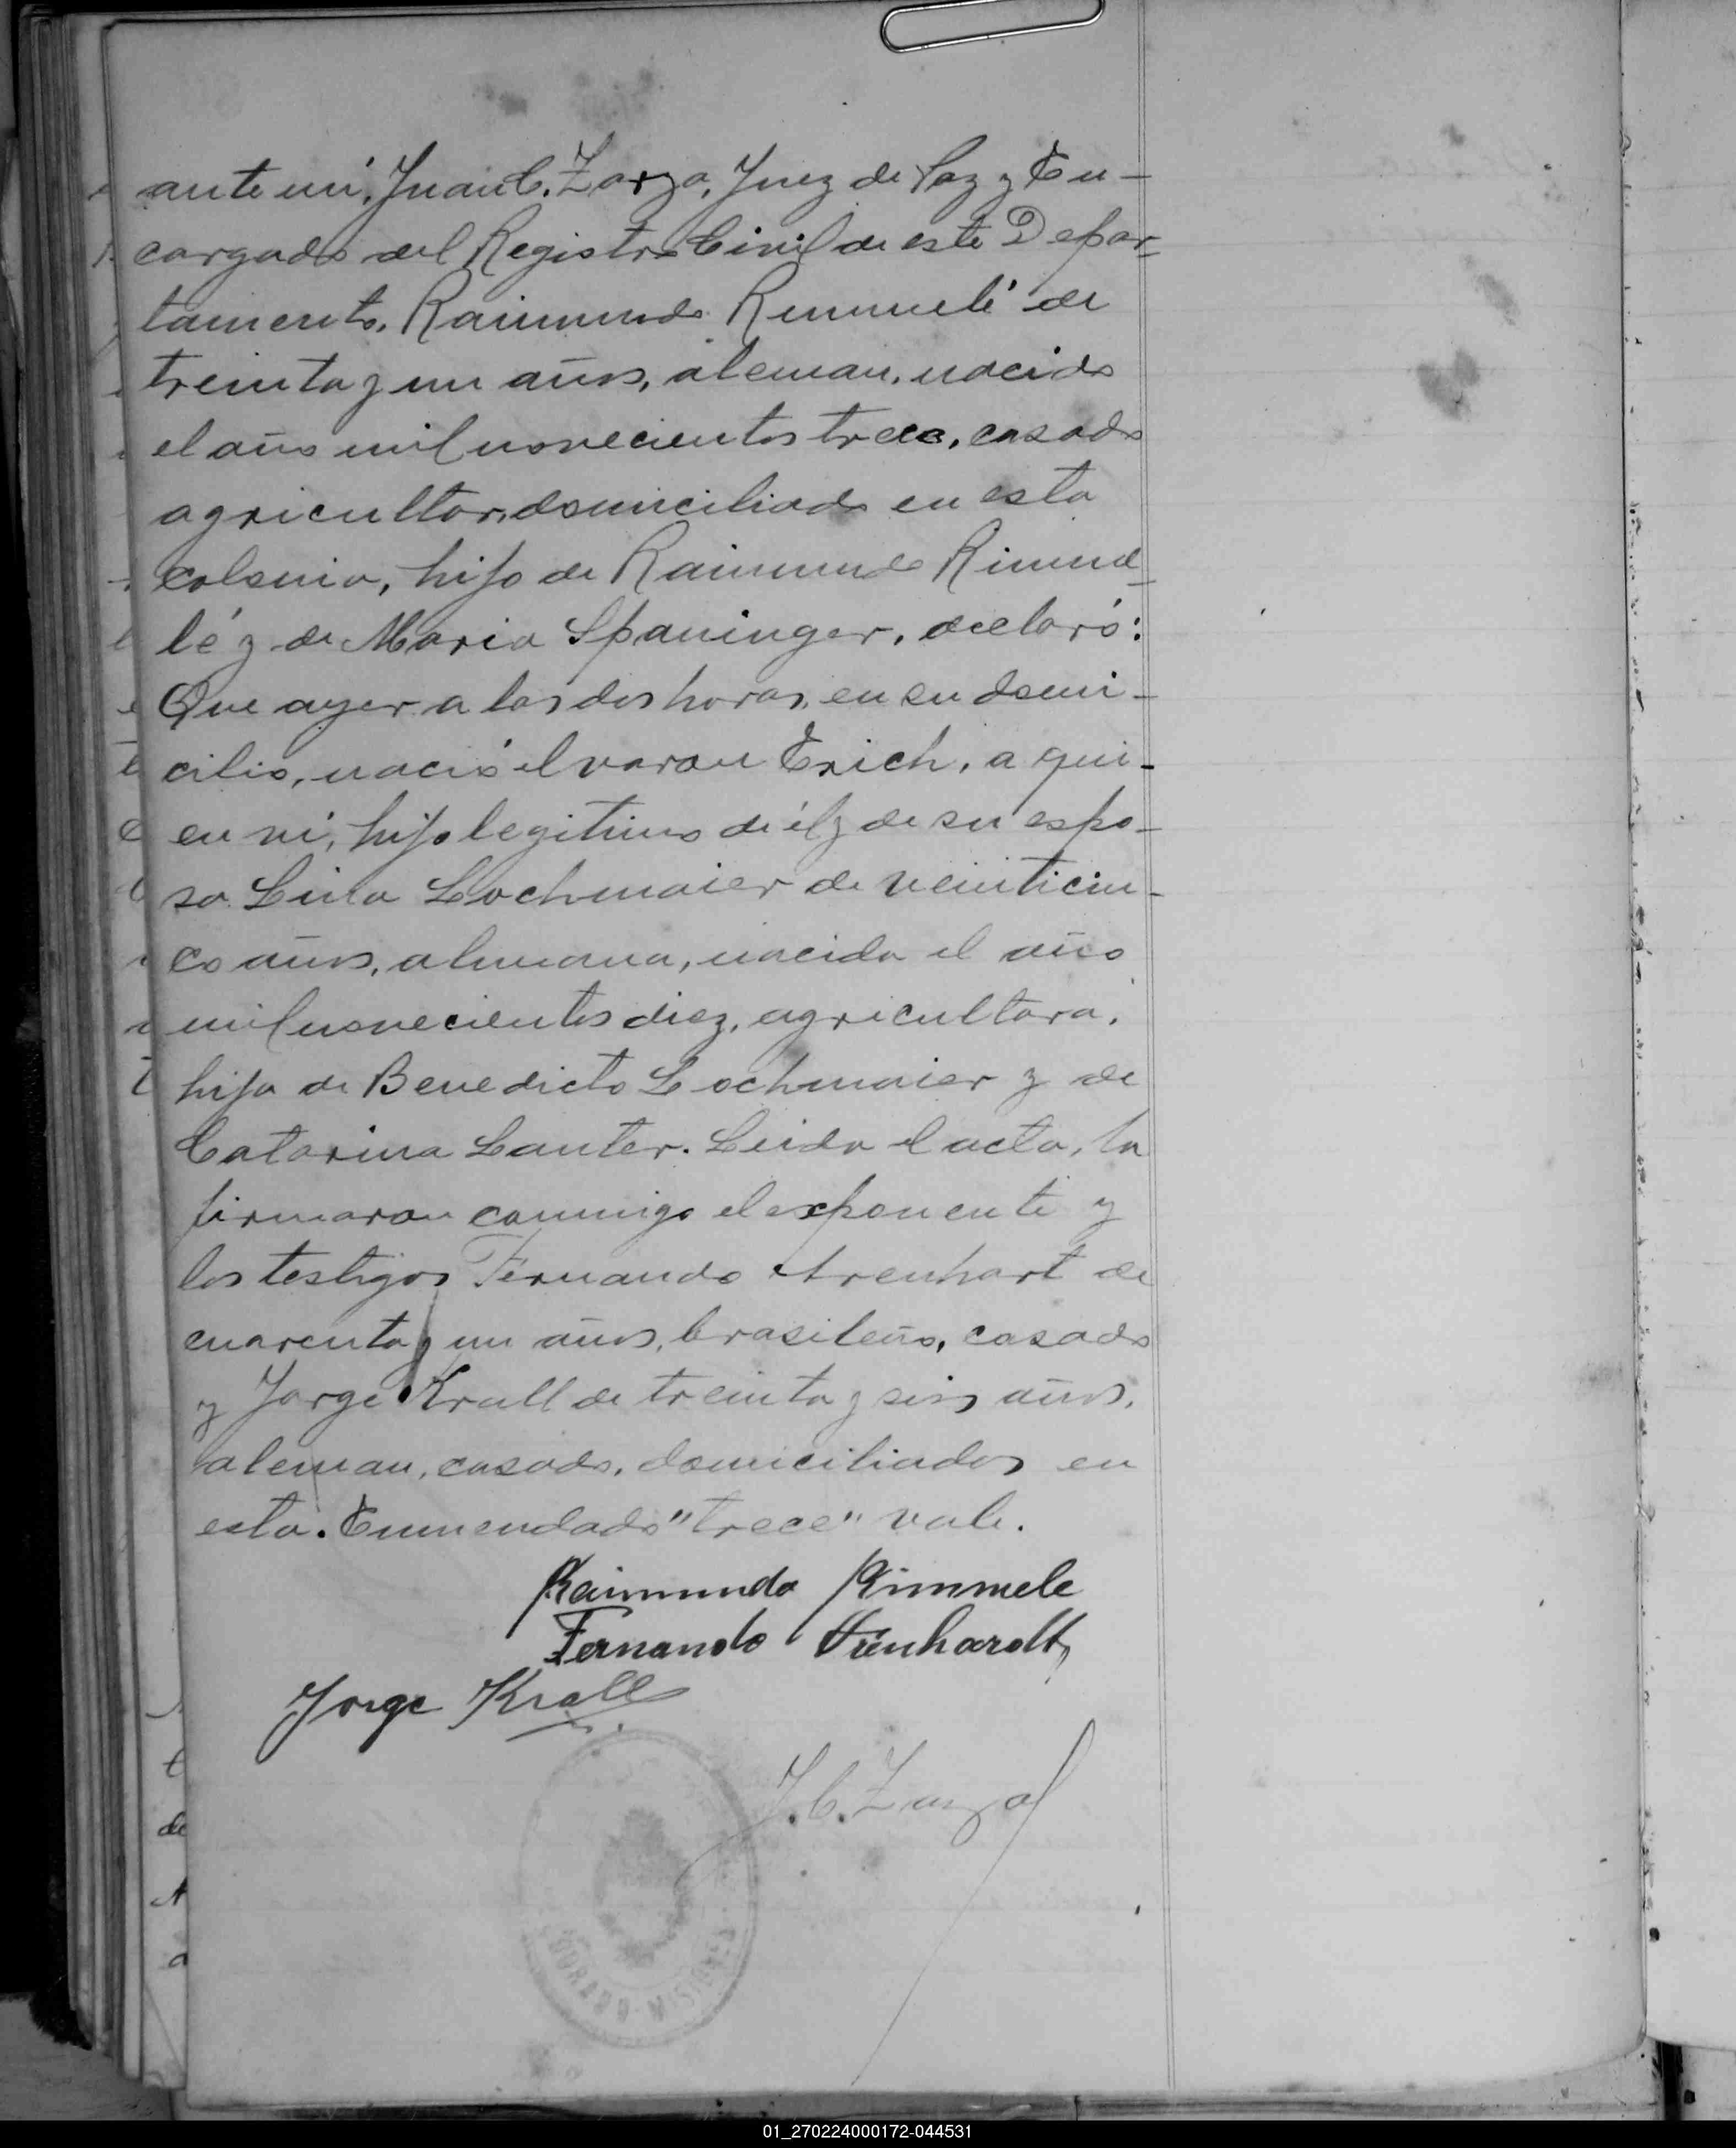 ante mí, Juan C. Zarza, Juez de Paz y En-
cargado del Registro Civil de este Depar-
tamento, Raimundo Rimmelé de
treinta y un años, aleman, nacido
el año mil novecientos trece, casado
agricultor, domiciliado en esta
colonia, hijo de Raimundo Rimme-
lé y de Maria Spaninger, declaró:
Que ayer a las dos horas, en su domi-
cilio, nació el varon Erich, a qui-
en ví, hijo legitimo de él y de su espo-
sa Lina Lochmaier de veinticin-
co años, alemana, nacida el año
mil novecientos diez, agricultora,
hija de Benedicto Lochmaier y de
Catarina Lauter. Leida el acta, la
firmaron conmigo el exponente y
los testigos Fernando Arenhart de
cuarenta y un años, brasileño, casado
y Jorge Krall de treinta y seis años,
aleman, casado, domiciliados en
esta. Enmendado "trece" vale.
Raimundo Rimmele
Fernando Arenhardt
Jorge Krall
J. C. Zarza
MISIONES
01_270224000172-044531